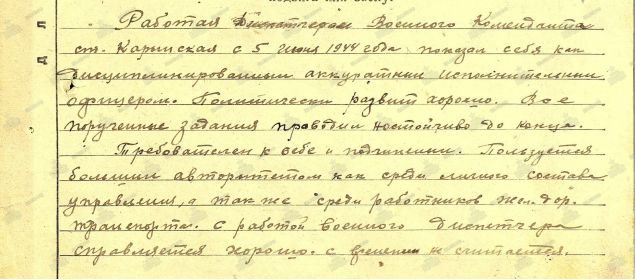 Работая Диспетчером Военного Коменданта
ст. Карымская с 5 Июня 1944 года показал себя как
дисциплинированным аккуратным исполнительным
офицером. Политически развит хорошо. Все
порученные задания проводил настойчиво до конца.
Требователен к себе и подчиненным. Пользуется
большим авторитетом как среди личного состава
управления, а так же среди работников жел. дор.
транспорта. с работой военного диспетчера
справляется хорошо. с временем не считается.